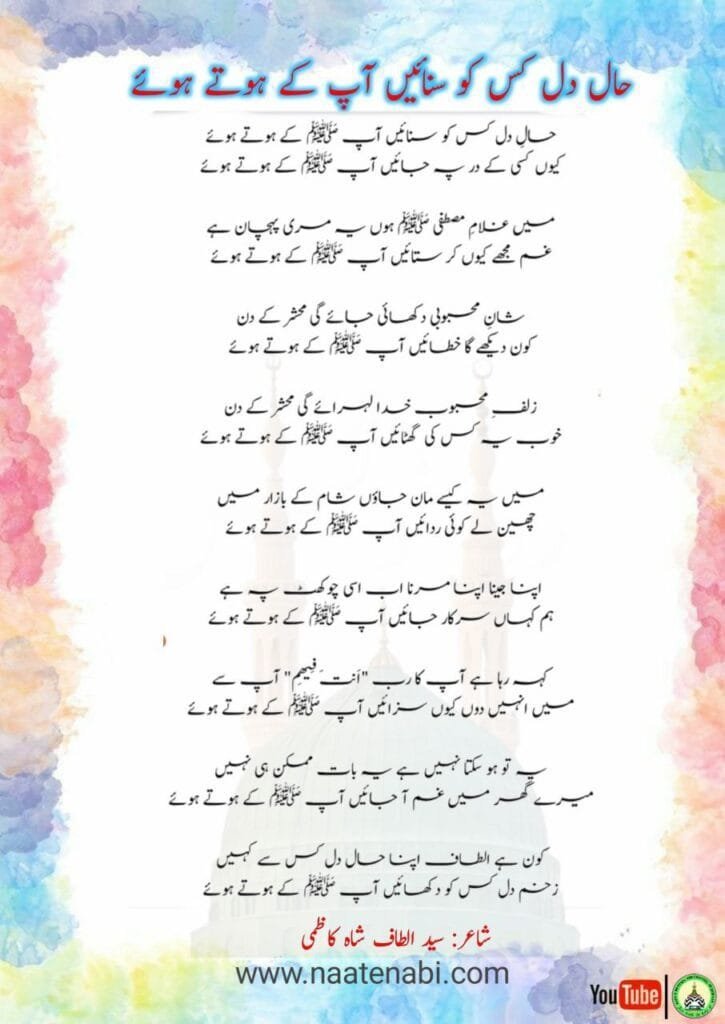 حال دل کس کو سنائیں آپ کے ہوتے ہوئے
حالِ دل کس کو سنائیں آپ ﷺ کے ہوتے ہوئے
کیوں کسی کے در پہ جائیں آپ ﷺ کے ہوتے ہوئے
میں غلامِ مصطفی ﷺ ہوں یہ مری پہچان ہے
غم مجھے کیوں کر ستائیں آپ ﷺ کے ہوتے ہوئے
شانِ محبوبی دکھائی جائے گی محشر کے دن
کون دیکھے گا خطائیں آپ ﷺ کے ہوتے ہوئے
زلفِ محبوب خدا لہرائے گی محشر کے دن
خوب یہ کس کی گھٹائیں آپ ﷺ کے ہوتے ہوئے
میں یہ کیسے مان جاؤں شام کے بازار میں
چھین لے کوئی ردائیں آپ ﷺ کے ہوتے ہوئے
اپنا جینا اپنا مرنا اب اسی چوکھٹ پہ ہے
ہم کہاں سرکار جائیں آپ ﷺ کے ہوتے ہوئے
کہہ رہا ہے آپ کا رب "اَنت َ فِیھِم" آپ سے
میں انہیں دوں کیوں سزائیں آپ ﷺ کے ہوتے ہوئے
یہ تو ہو سکتا نہیں ہے یہ بات ممکن ہی نہیں
میرے گھر میں غم آ جائیں آپ ﷺ کے ہوتے ہوئے
کون ہے الطاف اپنا حال دل کس سے کہیں
زخم دل کس کو دکھائیں آپ ﷺ کے ہوتے ہوئے
شاعر: سید الطاف شاہ کاظمی
www.naatenabi.com
YouTube